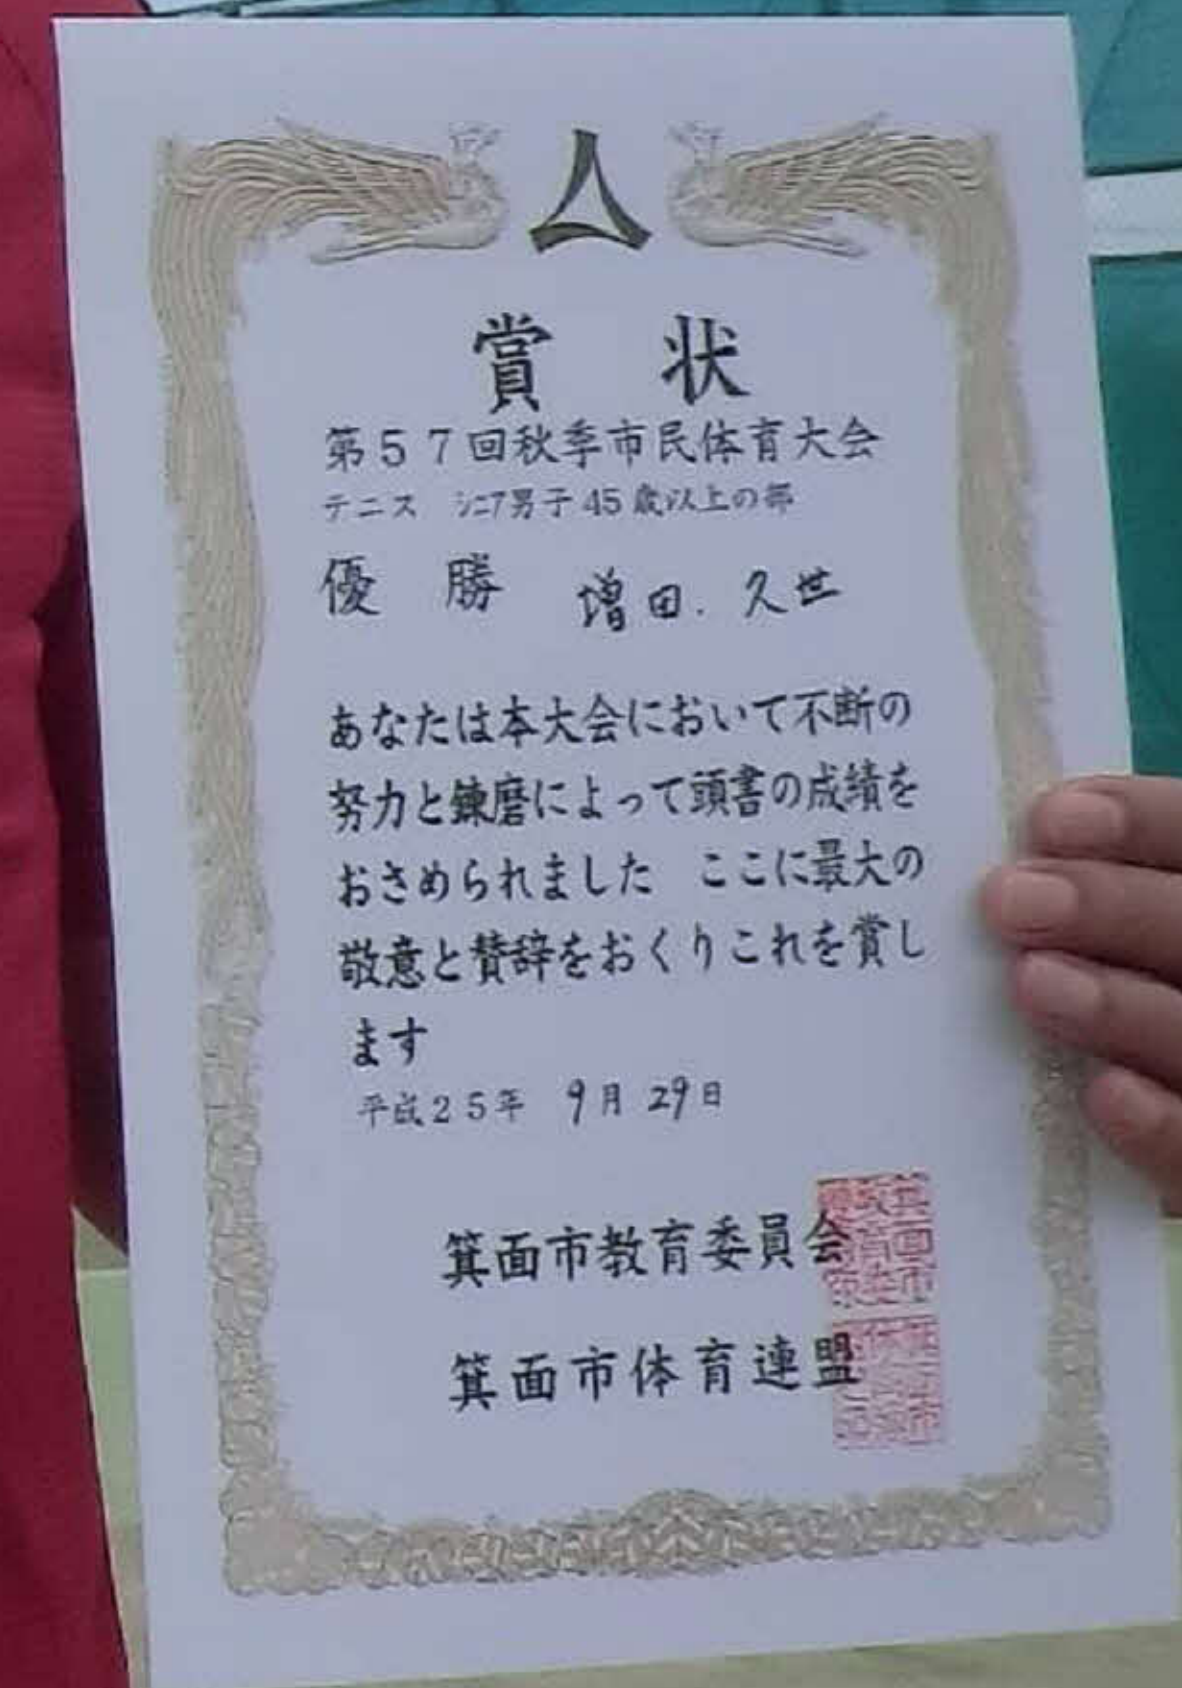 賞 状
第57回秋季市民体育大会
テニス シニア男子45歳以上の部
優 勝 増田.久世
あなたは本大会において不断の
努力と錬磨によって頭書の成績を
おさめられました ここに最大の
敬意と賛辞をおくりこれを賞し
ます
平成25年 9月29日
箕面市教育委員会
箕面市体育連盟